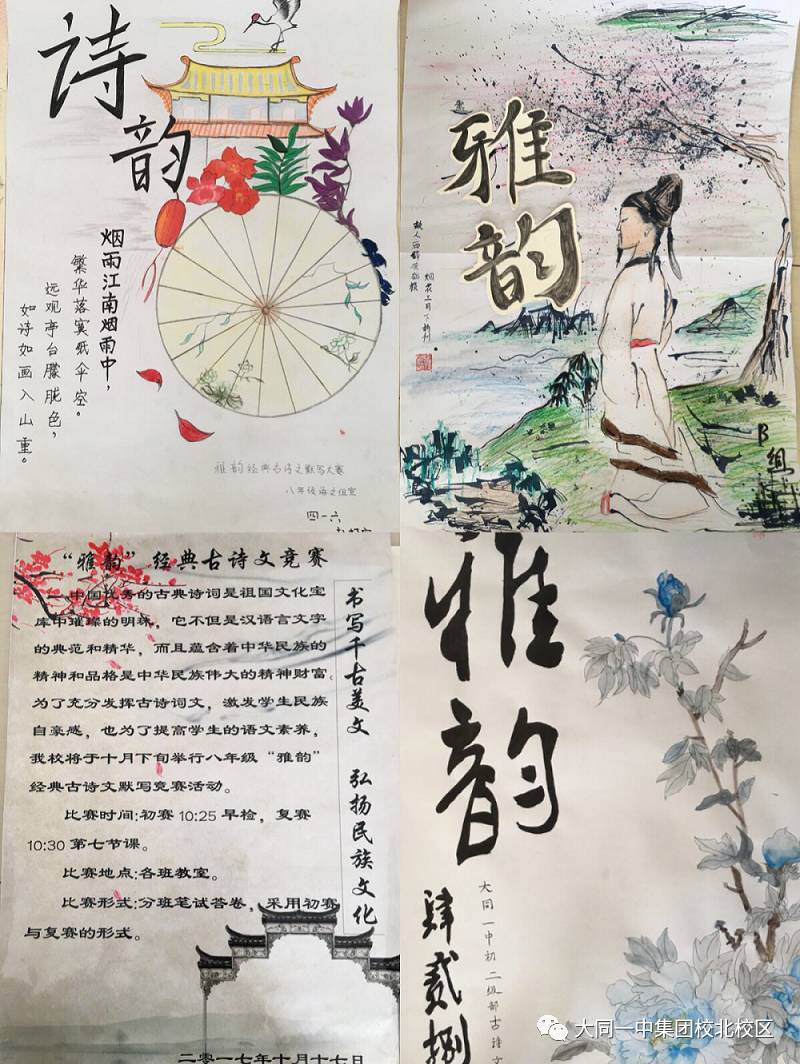 诗
韵
烟雨江南烟雨中，
繁华落寞纸伞空。
远观亭台朦胧色，
如诗如画入山重。
雅韵经典古诗文默写大赛
四一六
雅
韵
烟花三月下扬州。
B组
“雅韵”经典古诗文竞赛
中国优秀的古典诗词是祖国文化宝
库中璀璨的明珠，它不但是汉语言文字
的典范和精华，而且蕴含着中华民族的
精神和品格是中华民族伟大的精神财富。
为了充分发挥古诗词文，激发学生民族
自豪感，也为了提高学生的语文素养，
我校将于十月下旬举行八年级“雅韵”
经典古诗文默写竞赛活动。
比赛时间:初赛 10:25 早检，复赛
10:30 第七节课。
比赛地点:各班教室。
比赛形式:分班笔试答卷，采用初赛
与复赛的形式。
书写千古美文 弘扬民族文化
二零一七年十月十七日
雅
韵
大同一中初二级部古诗文
肆贰捌
大同一中集团校北校区